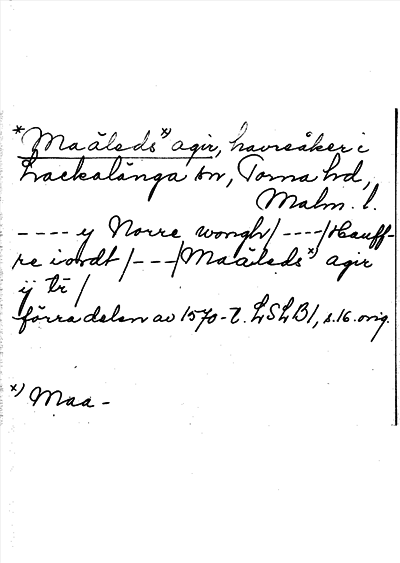 *Maäleds x) agir, havreåker i
Lackalänga sn, Torna hd,
Malm. l.
---- y Norre wongh/----/Hauff-
re iordt/---/Maäleds x) agir
ij tr /
förra delen av 1570-t. LSLB1, s.16. orig.
x) Maa-